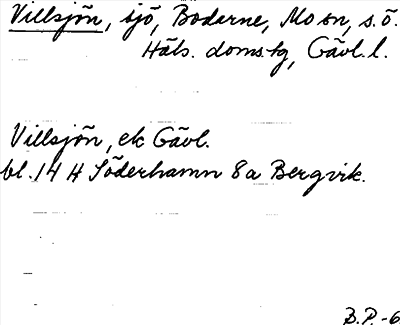 Villsjön, sjö, Boderne, Mo sn, s.ö.
Häls. doms.tg, Gävl. l.
Villsjön, ek Gävl.
bl. 14 H Söderhamn 8a Bergvik.
B.P. -6